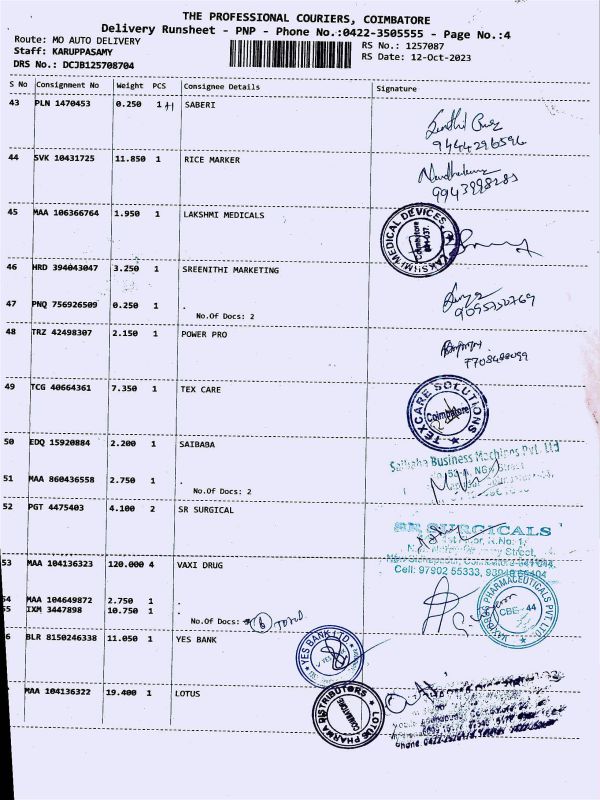 THE PROFESSIONAL COURIERS, COIMBATORE
Delivery Runsheet - PNP - Phone No.:0422-3505555 - Page No.:4
Route: MO AUTO DELIVERY
RS No.: 1257087
Staff: KARUPPASAMY
RS Date: 12-Oct-2023
DRS No.: DCJB125708704
S No Consignment No Weight PCS Consignee Details Signature
43 PLN 1470453 0.250 1 SABERI
9444296596
44 SVK 10431725 11.850 1 RICE MARKER
45 MAA 106366764 1.950 1 LAKSHMI MEDICALS
LAKSHMI MEDICAL DEVICES
Coimbatore
46 HRD 394043047 3.250 1 SREENITHI MARKETING
47 PNQ 756926509 0.250 1 .
No.Of Docs: 2
48 TRZ 42498307 2.150 1 POWER PRO
49 TCG 40664361 7.350 1 TEX CARE
TEXCARE SOLUTIONS
Coimbatore
50 EDQ 15920884 2.200 1 SAIBABA
Saibaba Business Machines Pvt. Ltd
51 MAA 860436558 2.750 1 .
No.Of Docs: 2
52 PGT 4475403 4.100 2 SR SURGICAL
SR SURGICALS
Cell: 97902 55333,
53 MAA 104136323 120.000 4 VAXI DRUG
54 MAA 104649872 2.750 1
55 IXM 3447898 10.750 1 .
No.Of Docs: 6 Total
PHARMACEUTICALS PVT LTD
CBE - 44
6 BLR 8150246338 11.050 1 YES BANK
YES BANK LTD
MAA 104136322 19.400 1 LOTUS
LOTUS PHARMA DISTRIBUTORS
COIMBATORE